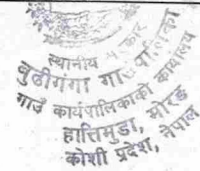 स्थानीय
बुढीगंगा गाउँपालिका
गाउँ कार्यपालिकाको कार्यालय
हात्तिमुडा, मोरङ
कोशी प्रदेश, नेपाल